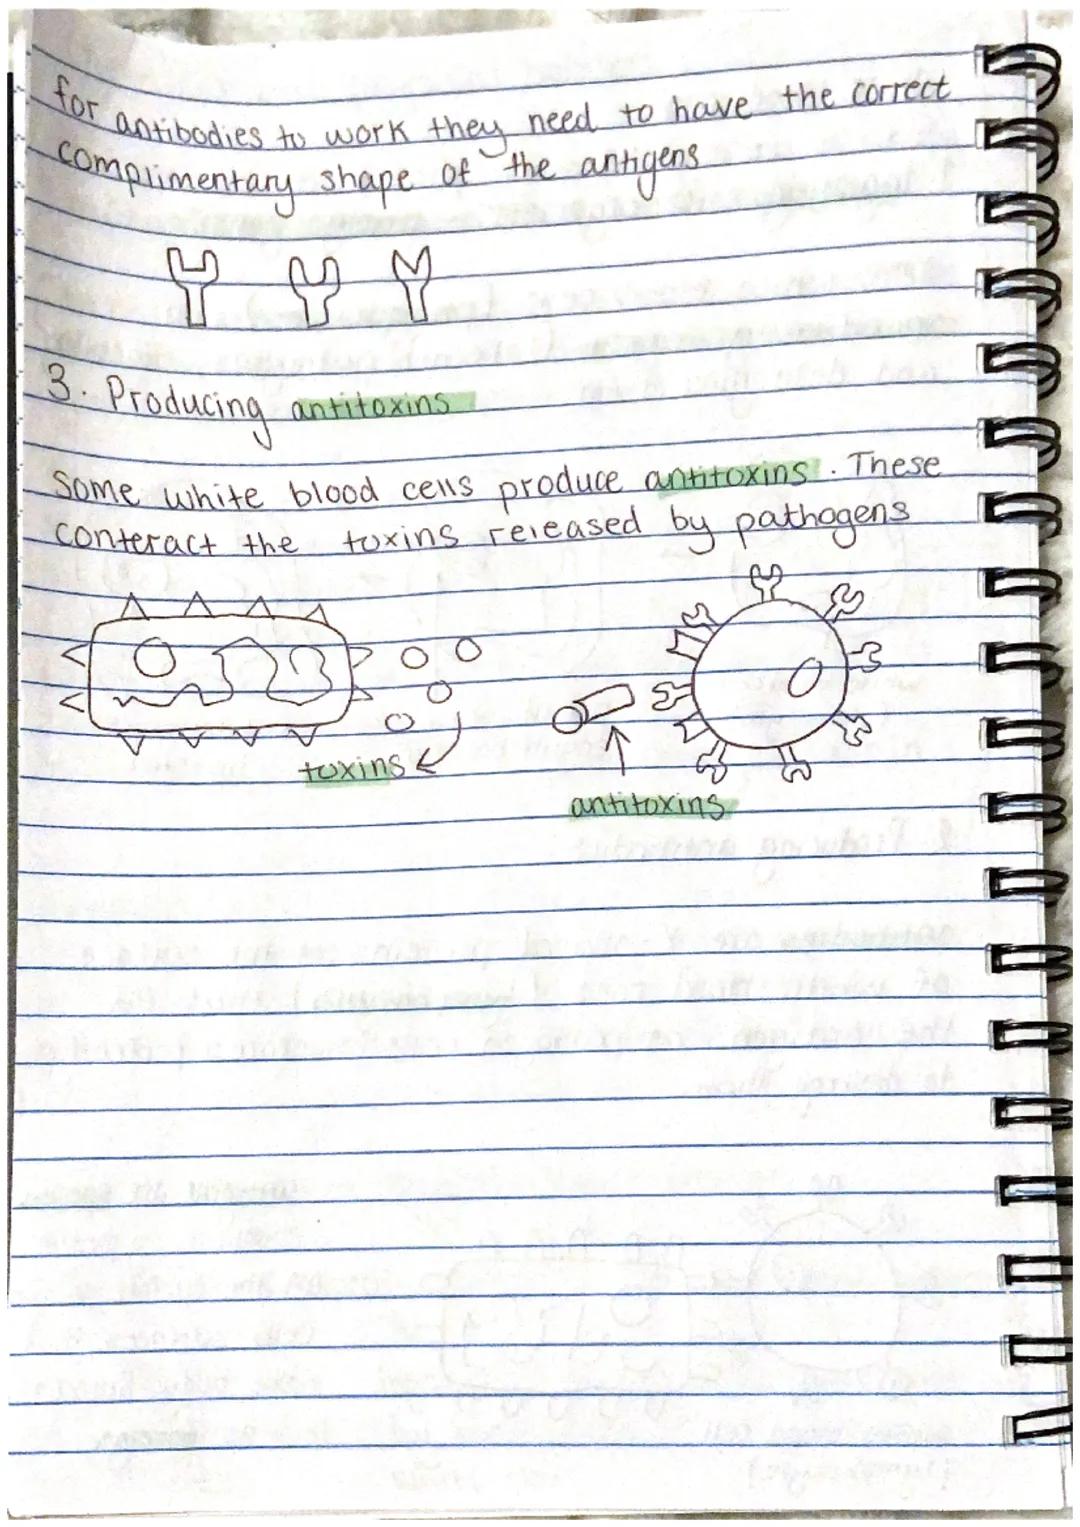 for antibodies to work they need to have the correct
complimentary shape of the antigens
3. Producing antitoxins
Some white blood cells produce antitoxins. These
conteract the toxins released by pathogens
toxins
antitoxins